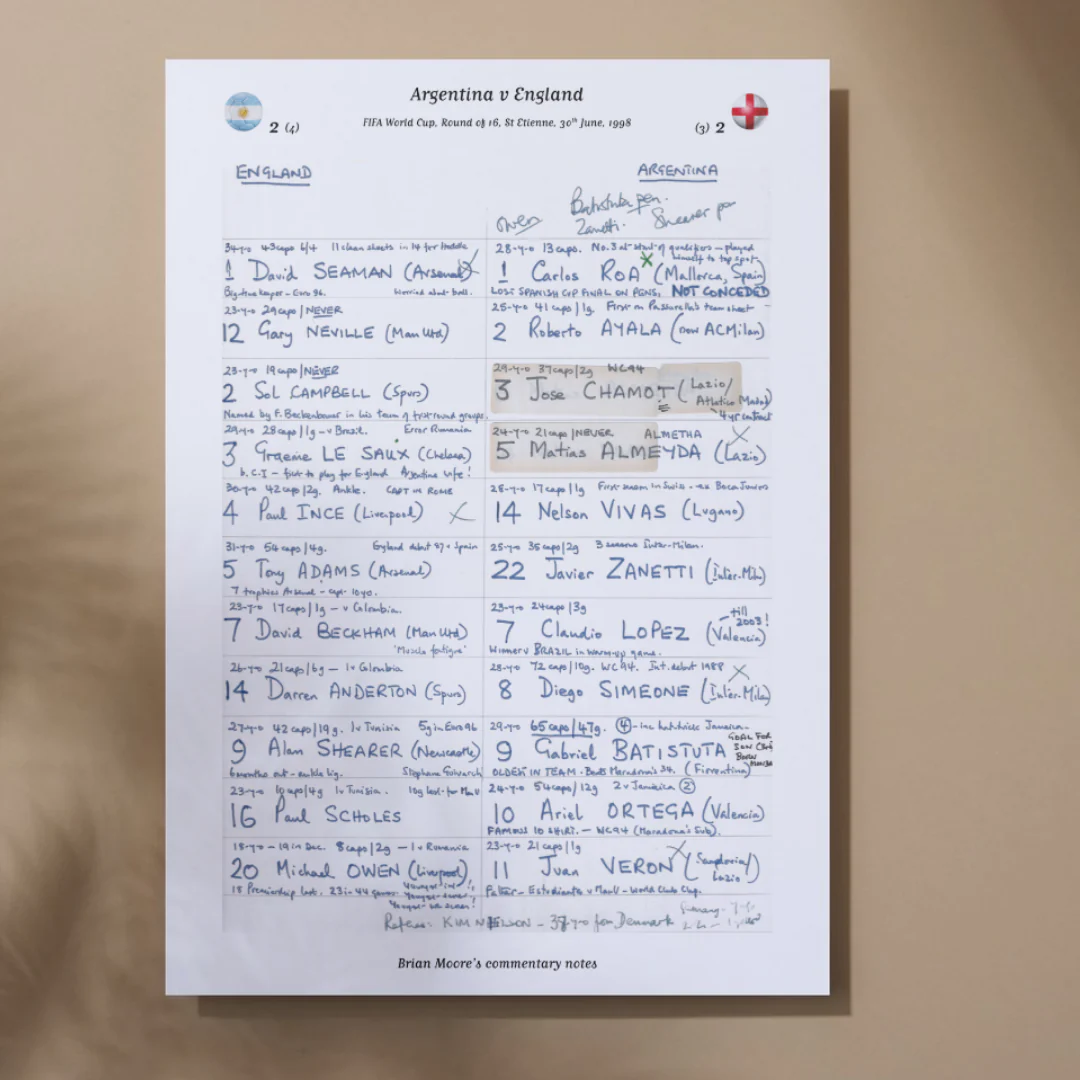 Argentina v England
2 (4)
FIFA World Cup, Round of 16, St Etienne, 30th June, 1998
(3) 2
ENGLAND
ARGENTINA
Owen
Batistuta pen.
Zanetti.
Shearer pen
34-y-o 43caps 6/4 11 clean sheets in 14 for Hoddle
1 David SEAMAN (Arsenal)
Big time keeper - Euro 96. Worried about ball.
28-y-o 13 caps. No.3 at start of qualifiers - played himself to top spot
1 Carlos ROA (Mallorca, Spain)
LOST SPANISH CUP FINAL ON PENS. NOT CONCEDED
23-y-o 29caps/NEVER
12 Gary NEVILLE (Man Utd)
25-y-o 41 caps/1g. First on Passarella's team sheet
2 Roberto AYALA (now AC Milan)
23-y-o 19caps/NEVER
2 Sol CAMPBELL (Spurs)
Named by F. Beckenbauer in his team of first-round groups.
29-y-o 37caps/2g WC94
3 Jose CHAMOT (Lazio/
Atletico Madrid)
4 yr contract
29-y-o 28caps/1g - v Brazil. Error Rumania
3 Graeme LE SAUX (Chelsea)
b. C.I - first to play for England Argentine wife!
24-y-o 21caps/NEVER ALMETHA
5 Matias ALMEYDA (Lazio)
30-y-o 42 caps/2g. Ankle. CAPT IN ROME
4 Paul INCE (Liverpool)
28-y-o 17caps/1g First season in Swiss - ex Boca Juniors
14 Nelson VIVAS (Lugano)
31-y-o 54 caps/4g. England debut 87 v Spain
5 Tony ADAMS (Arsenal)
7 trophies Arsenal - capt. 10yo.
25-y-o 35caps/2g 3 seasons Inter-Milan.
22 Javier ZANETTI (Inter-Milan)
23-y-o 17caps/1g - v Colombia.
7 David BECKHAM (Man Utd)
'Muscle fatigue'
23-y-o 24caps/3g
7 Claudio LOPEZ (Valencia)
- till 2003!
Winner v BRAZIL in warm-up game.
26-y-o 21caps/6g - 1v Colombia
14 Darren ANDERTON (Spurs)
28-y-o 72 caps/10g. WC94. Int. debut 1988
8 Diego SIMEONE (Inter-Milan)
27-y-o 42 caps/19g. 1v Tunisia 5g in Euro 96
9 Alan SHEARER (Newcastle)
6 months out - ankle lig. Stephane Guivarc'h
29-y-o 65caps/47g. 4 - inc hat-trick Jamaica -
9 Gabriel BATISTUTA
GOAL FOR
SON
BORN
OLDEST IN TEAM - Beats Maradona's 34. (Fiorentina)
23-y-o 10caps/4g 1v Tunisia. 10g last for Man U
16 Paul SCHOLES
24-y-o 54caps/12g 2v Jamaica 2
10 Ariel ORTEGA (Valencia)
FAMOUS 10 SHIRT. - WC94 (Maradona's Sub).
18-y-o - 19 in Dec. 8caps/2g - 1v Romania
20 Michael OWEN (Liverpool)
18 Premiership last. 23 in 44 games. Youngest int!
Youngest scorer!
Youngest WC scorer!
23-y-o 21caps/1g
11 Juan VERON (Sampdoria/
Lazio)
Father - Estudiantes v Man U - World Club Cup.
Referee: KIM NIELSON - 37-y-o from Denmark
Brian Moore's commentary notes